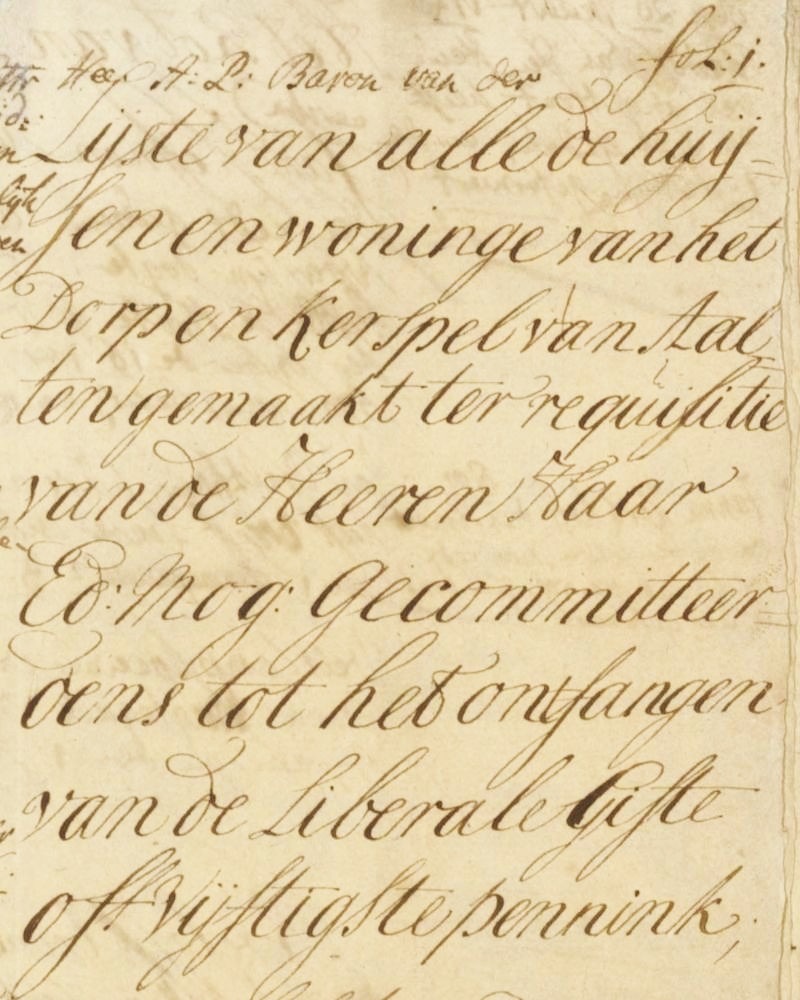 fol: 1.
Heer A: P: Baron van der
Lijste van alle de huij=
sen en woninge van het
Dorp en Kerspel van Aal
ten gemaakt ter requisitie
van de Heeren Haar
Ed: Mog: Gecommitteer=
dens tot het ontfangen
van de Liberale Gifte
off Vijftigste pennink,